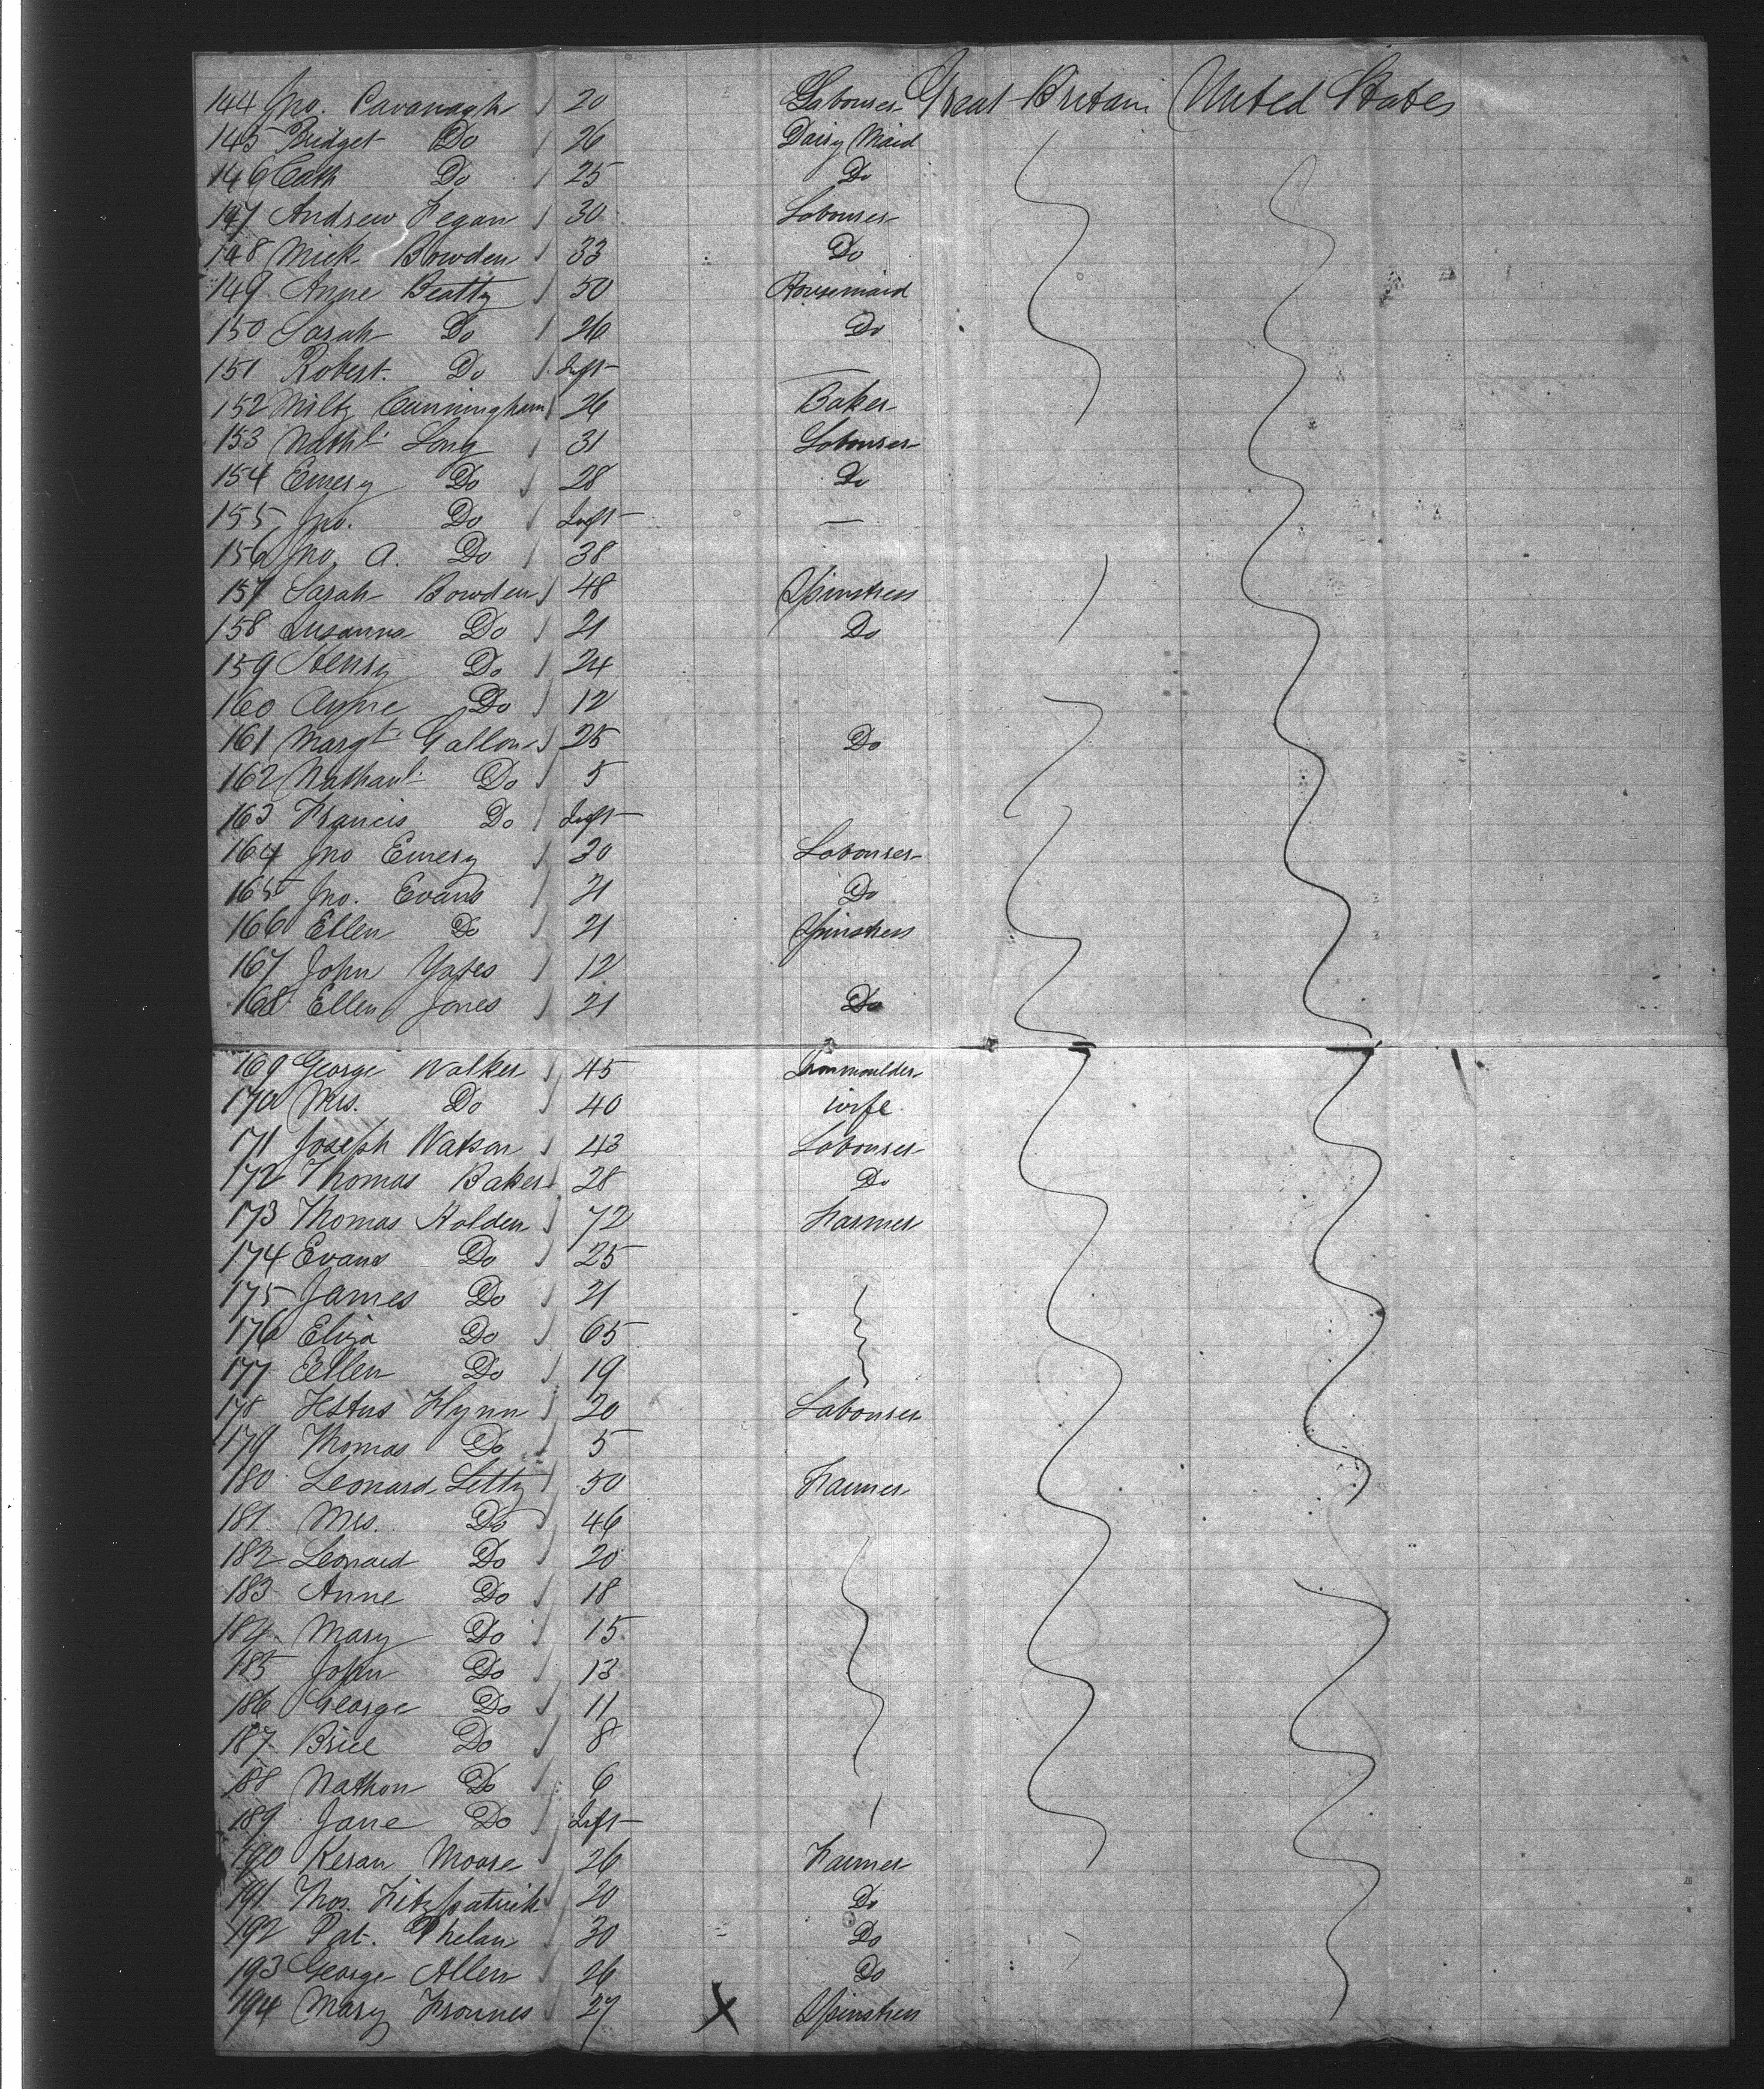 144 Jno. Cavanagh 20 Labourer Great Britain United States
145 Bridget Do 26 Dairy Maid
146 Cath Do 25 Do
147 Andrew Fegan 30 Labourer
148 Mick Bowden 33 Do
149 Anne Beatty 50 Housemaid
150 Sarah Do 26 Do
151 Robert. Do Inft —
152 Cunningham 26 Baker
153 Nathl. Long 31 Labourer
154 Emery Do 28 Do
155 Jno. Do Inft —
156 Jno. A. Do 38
157 Sarah Bowden 48 Spinstress
158 Susanna Do 21 Do
159 Henry Do 24
160 Anne Do 12
161 Margt. Gallon 25 Do
162 Nathanl. Do 5
163 Francis Do Inft
164 Jno Emery 30 Labourer
165 Jno. Evans 21 Do
166 Ellen Do 21 Spinstress
167 John Yates 12
168 Ellen Jones 21 Do
169 George Walker 45 Ironmoulder
170 Mrs. Do 40 wife
171 Joseph Watson 43 Labourer
172 Thomas Baker 28 Do
173 Thomas Holden 72 Farmer
174 Evans Do 25
175 James Do 21
176 Eliza Do 65
177 Ellen Do 19
178 Festus Flynn 20 Labourer
179 Thomas Do 5
180 Leonard Letty 50 Farmer
181 Mrs. Do 46
182 Leonard Do 20
183 Anne Do 18
184 Mary Do 15
185 John Do 13
186 George Do 11
187 Brice Do 8
188 Nathan Do 6
189 Jane Do Inft
190 Keran Moore 26 Farmer
191 Thos. Fitzpatrick 20 Do
192 Pat. Phelan 30 Do
193 George Allen 26 Do
194 Mary 27 X Spinstress